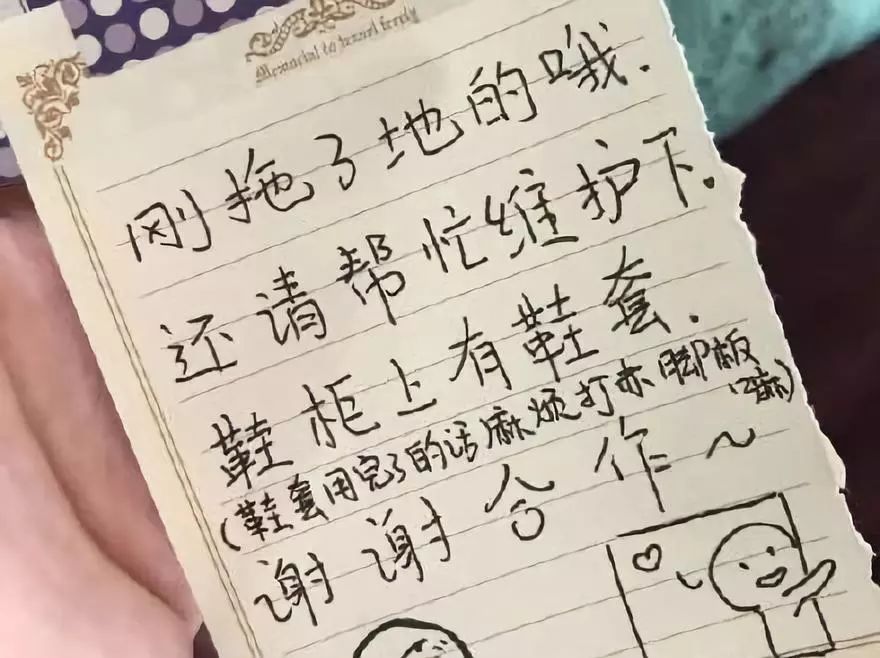 刚拖了地的哦.
还请帮忙维护下.
鞋柜上有鞋套.
(鞋套用完了的话麻烦打赤脚板嘛)
谢谢合作~